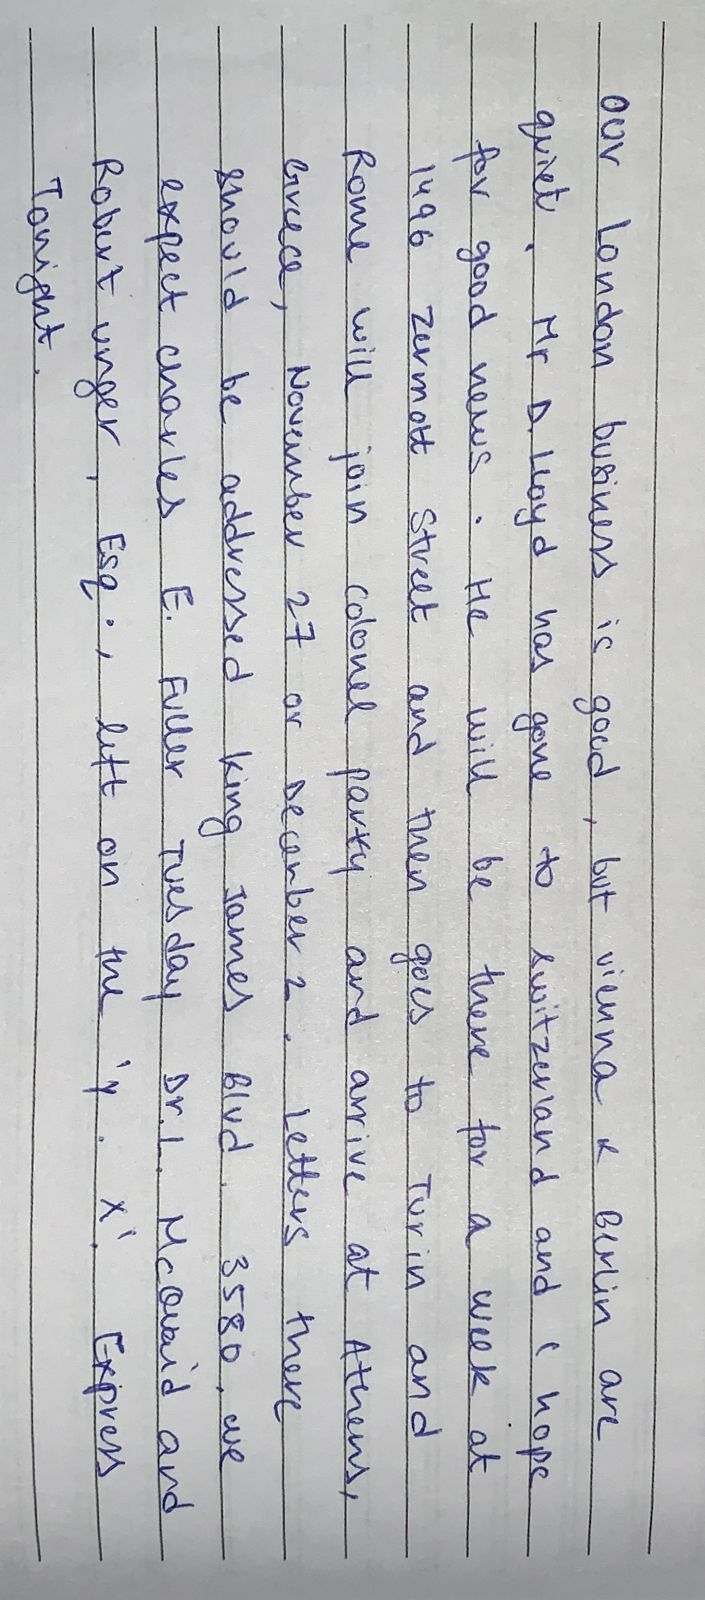 Our London business is good, but vienna & Berlin are
quiet. Mr D. Lloyd has gone to switzerland and I hope
for good news. He will be there for a week at
1496 Zermott Street and then goes to Turin and
Rome will join colonel party and arrive at Athens,
Greece, November 27 or December 2. Letters there
should be addressed King James Blvd. 3580. we
expect charles E. Fuller Tuesday Dr. L. McQuaid and
Robert unger, Esq., left on the 'y. X'. Express
Tonight.